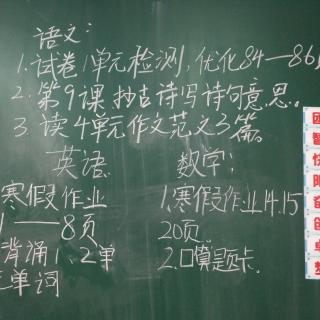 语文：
1.试卷1单元检测,优化84—86页
2.第9课抄古诗写诗句意思。
3.读4单元作文范文3篇。
英语.
寒假作业
1——8页
背诵1、2单
元单词
数学：
1.寒假作业14.15
20页.
2.口算题卡.
智
创
卓
梦